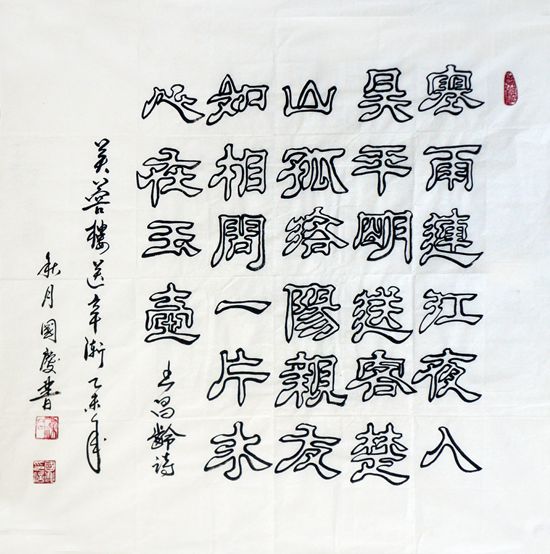 寒雨連江夜入
吳平明送客楚
山孤洛陽親友
如相問一片氷
心在玉壺 王昌齡詩
芙蓉樓送辛漸 乙未年
秋月國慶書